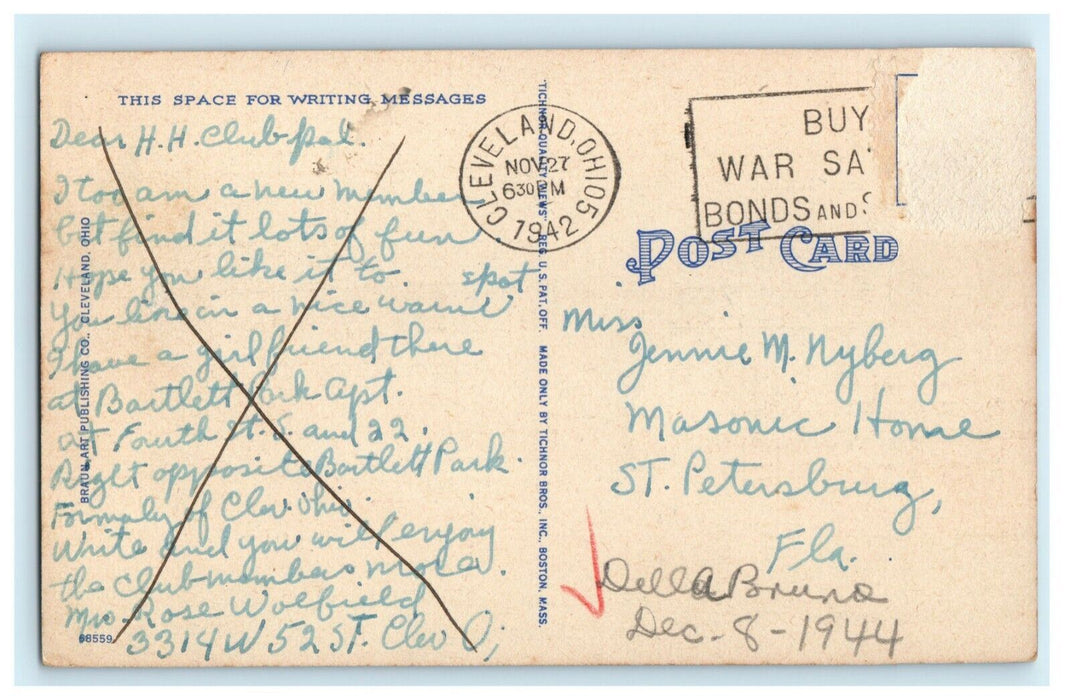 THIS SPACE FOR WRITING MESSAGES
Dear H. H. Club-pal.
I too am a new member
but find it lots of fun.
Hope you like it to.
You live in a nice warm spot
I have a girl friend there
at Bartlett Park Apt.
at Fourth St. S. and 22.
Right opposite Bartlett Park.
Formaly of Clev. Ohio
Write and you will enjoy
the Club members more.
Mrs. Rose Wolfield
3314 W 52 ST. Clev O,
68559
BRAUN ART PUBLISHING CO., CLEVELAND, OHIO
"TICHNOR QUALITY VIEWS" REG. U. S. PAT. OFF. MADE ONLY BY TICHNOR BROS., INC., BOSTON, MASS.
CLEVELAND, OHIO 5
NOV 27
6 30 PM
1942
BUY
WAR SA
BONDS AND S
POST CARD
Miss
Jennie M. Nyberg
Masonic Home
ST. Petersburg,
Fla.
Della Bruno
Dec. 8-1944